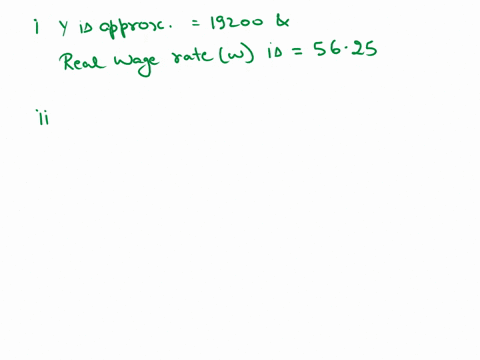 i Y is approx. = 19200 &
Real Wage rate (w) is = 56.25
ii